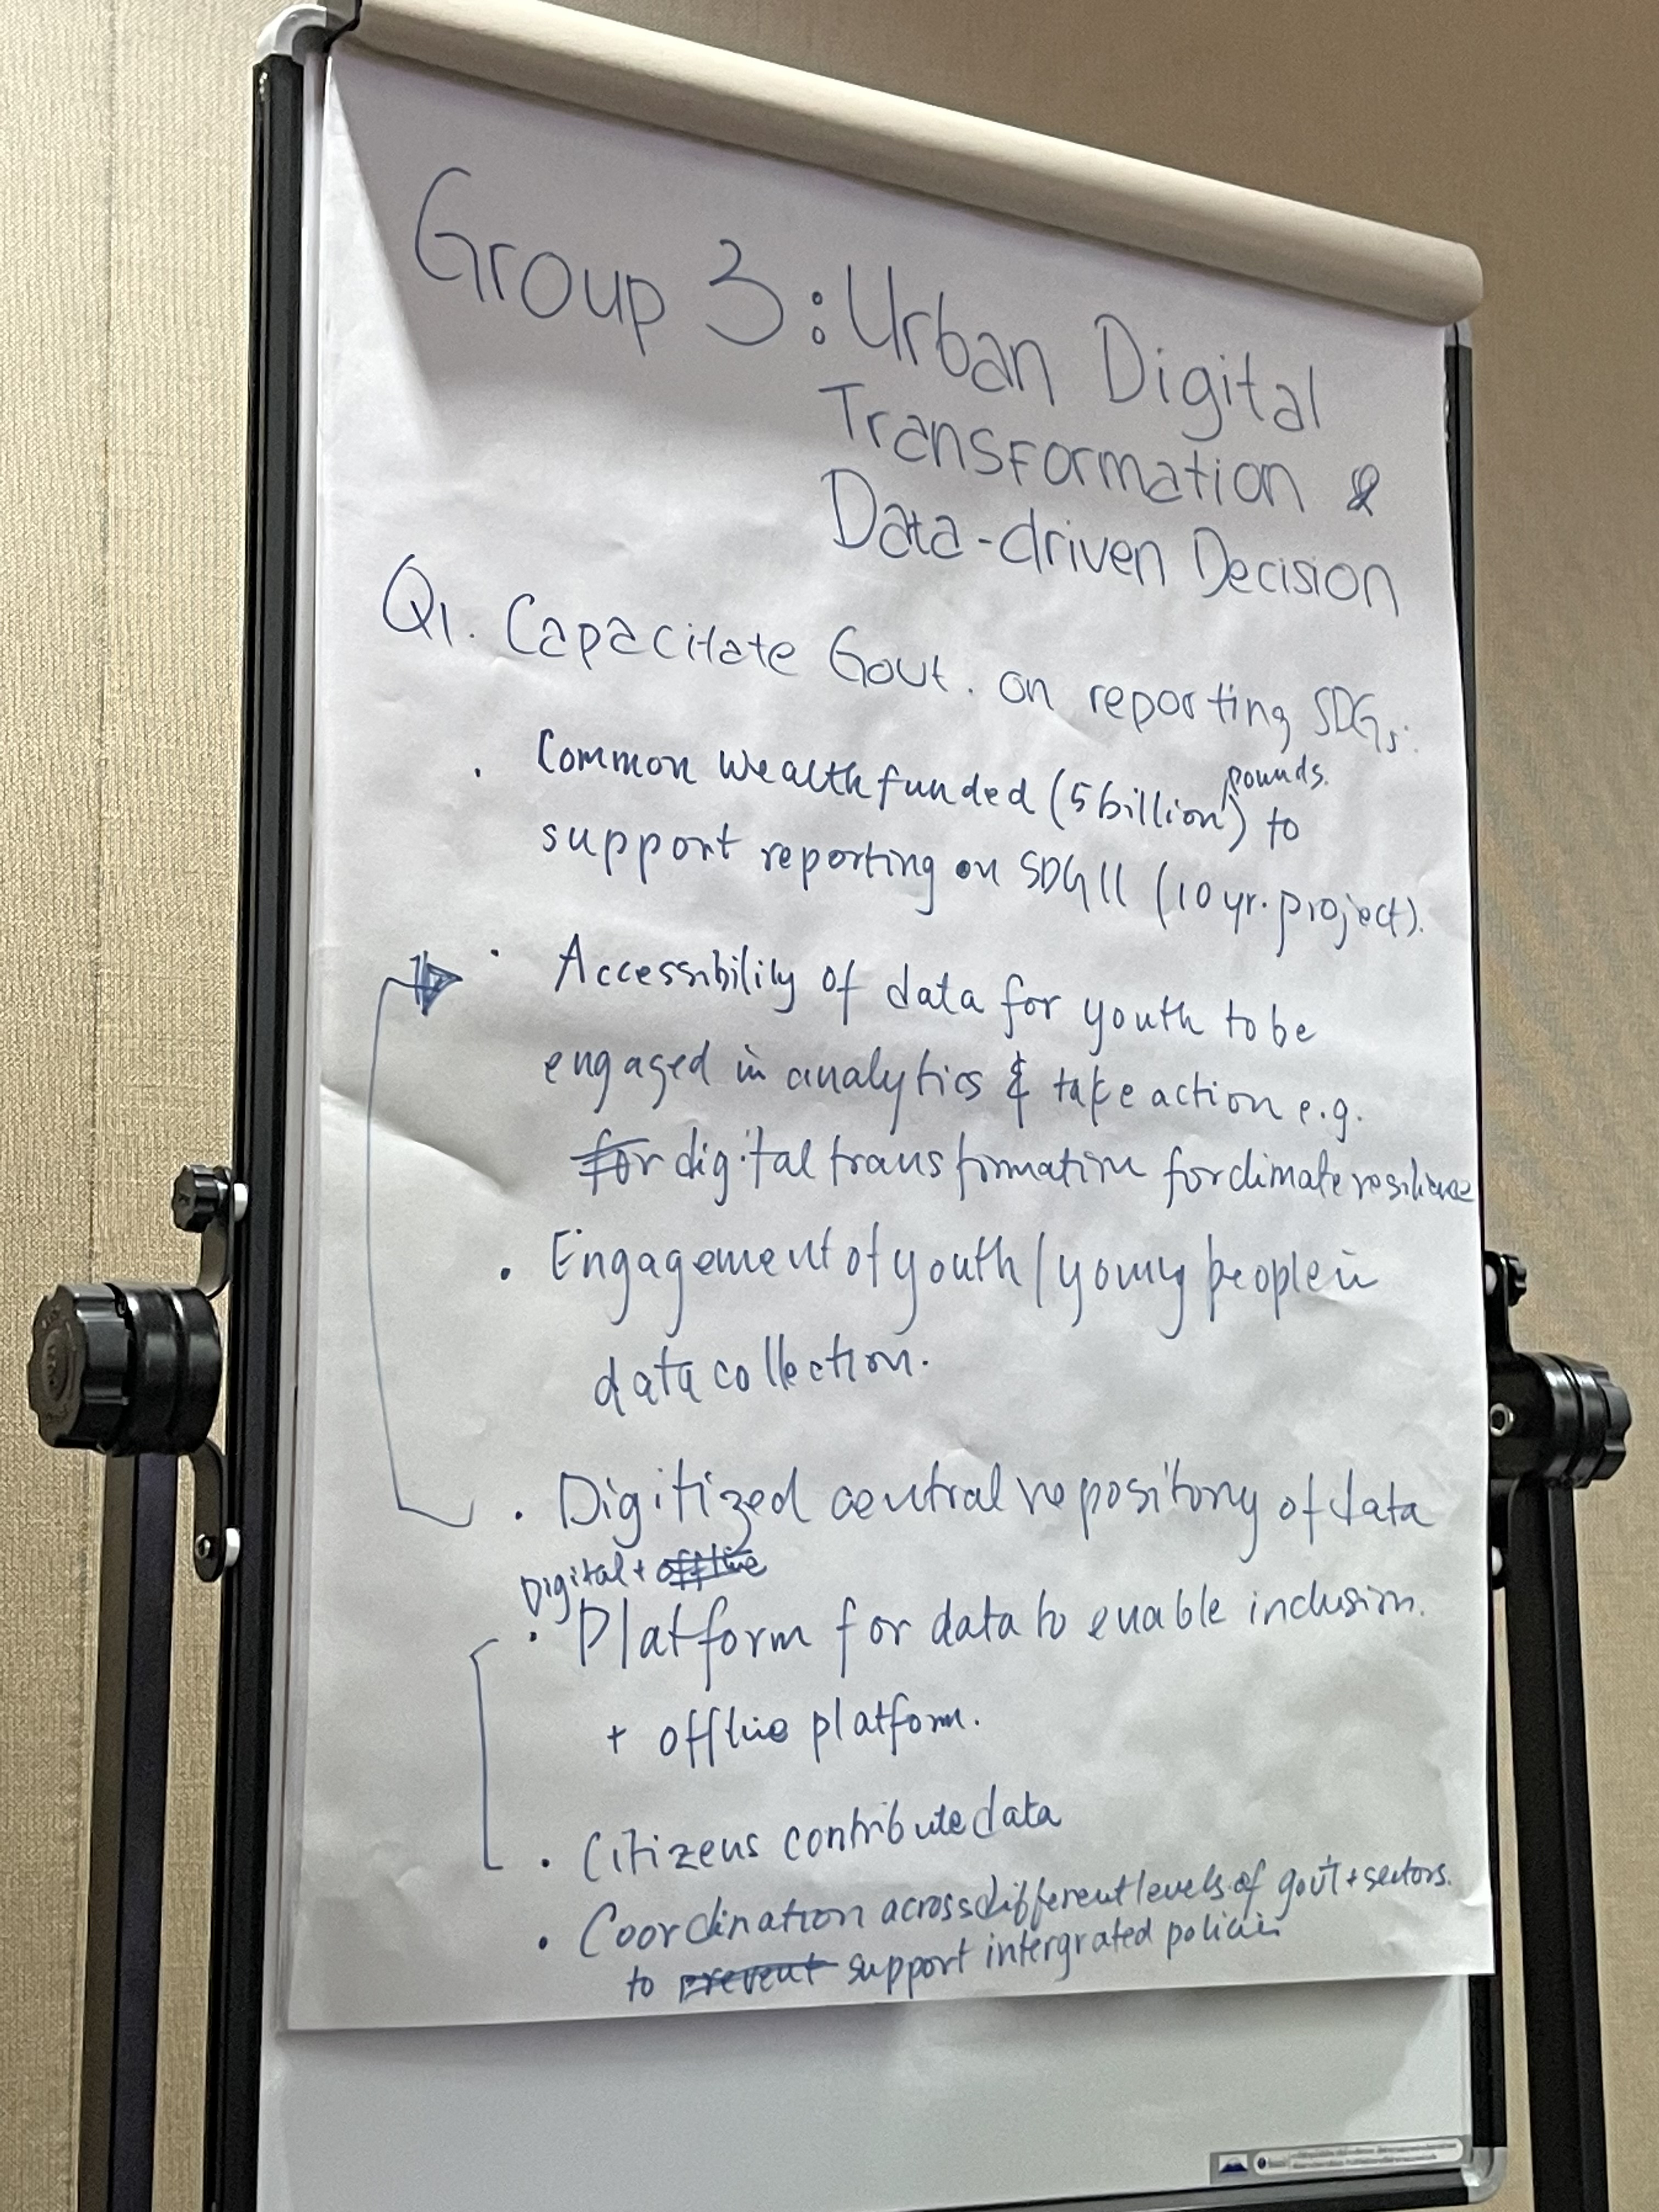 Group 3: Urban Digital
Transformation &
Data-driven Decision
Q1. Capacitate Govt. on reporting SDGs.
pounds.
• Common wealth funded (5 billion) to
support reporting on SDG 11 (10 yr. project).
• Accessibility of data for youth to be
engaged in analytics & take action e.g.
for digital transformation for climate resilience
• Engagement of youth / young people in
data collection.
• Digitized central repository of data
Digital + offline
• Platform for data to enable inclusion.
+ offline platform.
• Citizens contribute data
• Coordination across different levels of gov't + sectors.
to prevent support intergrated policies